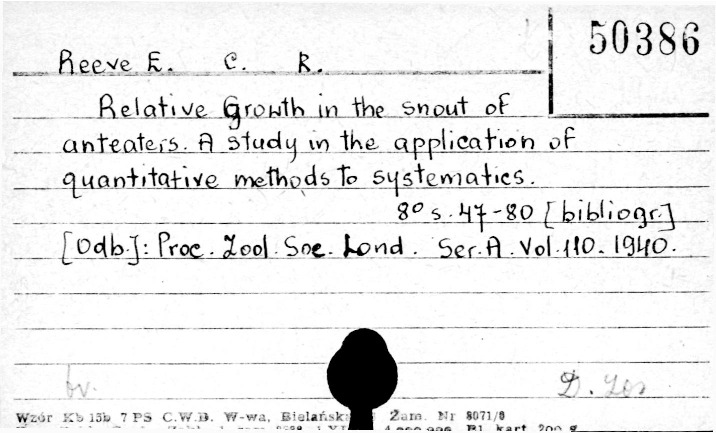 50386
Reeve E. C. R.
Relative Growth in the snout of
anteaters. A study in the application of
quantitative methods to systematics.
8° s. 47-80 [bibliogr.]
[Odb.]: Proc. Zool. Soc. Lond. Ser. A. Vol. 110. 1940.
br. D.
Wzór Kb 15b 7 PS C.W.D. W-wa, Zam. Nr 8071/8
Bl. kart 200 g